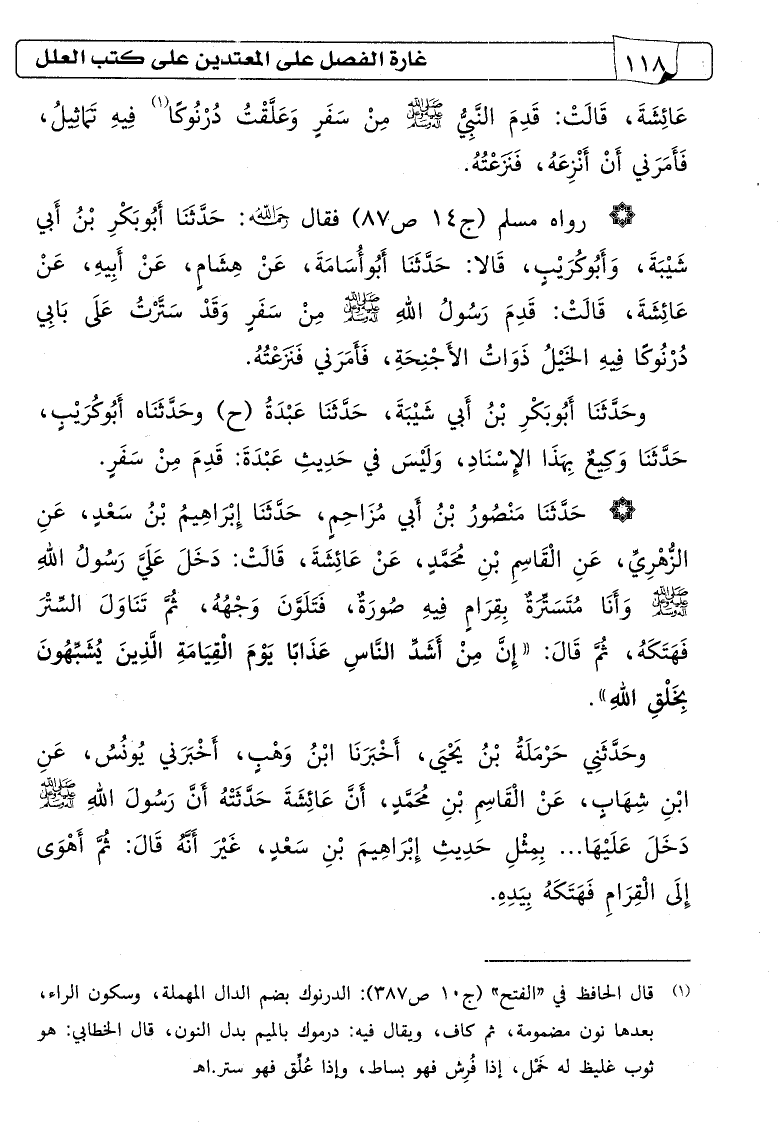 ١١٨ غارة الفصل على المعتدين على كتب العلل
عَائِشَةَ، قَالَتْ: قَدِمَ النَّبِيُّ ﷺ مِنْ سَفَرٍ وَعَلَّقْتُ دُرْنُوكًا(١) فِيهِ تَمَاثِيلُ،
فَأَمَرَني أَنْ أَنْزِعَهُ، فَنَزَعْتُهُ.
۞ رواه مسلم (ج١٤ ص٨٧) فقال رحمه الله: حَدَّثَنَا أَبُوبَكْرِ بْنُ أَبي
شَيْبَةَ، وَأَبُوكُرَيْبٍ، قَالا: حَدَّثَنَا أَبوأُسَامَةَ، عَنْ هِشَامٍ، عَنْ أَبيهِ، عَنْ
عَائِشَةَ، قَالَتْ: قَدِمَ رَسُولُ اللهِ ﷺ مِنْ سَفَرٍ وَقَدْ سَتَّرْتُ عَلَى بَابي
دُرْنُوكًا فيهِ الخَيْلُ ذَوَاتُ الأَجْنِحَةِ، فَأَمَرَني فَنَزَعْتُهُ.
وحَدَّثَنَا أَبُوبَكْرِ بْنُ أَبي شَيْبَةَ، حَدَّثَنَا عَبْدَةُ (ح) وحَدَّثَنَاه أَبُوكُرَيْبٍ،
حَدَّثَنَا وَكِيعٌ بِهَذَا الإِسْنَادِ، وَلَيْسَ في حَدِيثِ عَبْدَةَ: قَدِمَ مِنْ سَفَرٍ.
۞ حَدَّثَنَا مَنْصُورُ بْنُ أَبي مُزَاحِمٍ، حَدَّثَنَا إِبْرَاهِيمُ بْنُ سَعْدٍ، عَنِ
الزُّهْرِيِّ، عَنِ الْقَاسِمِ بْنِ مُحَمَّدٍ، عَنْ عَائِشَةَ، قَالَتْ: دَخَلَ عَلَيَّ رَسُولُ اللهِ
ﷺ وَأَنَا مُتَسَتِّرَةٌ بِقِرَامٍ فِيهِ صُورَةٌ، فَتَلَوَّنَ وَجْهُهُ، ثُمَّ تَنَاوَلَ السِّتْرَ
فَهَتَكَهُ، ثُمَّ قَالَ: «إِنَّ مِنْ أَشَدِّ النَّاسِ عَذَابًا يَوْمَ الْقِيَامَةِ الَّذِينَ يُشَبِّهُونَ
بِخَلْقِ اللهِ».
وحَدَّثَنِي حَرْمَلَةُ بْنُ يَحْيَى، أَخْبَرَنَا ابْنُ وَهْبٍ، أَخْبَرَني يُونُسُ، عَنِ
ابْنِ شِهَابٍ، عَنْ الْقَاسِمِ بْنِ مُحَمَّدٍ، أَنَّ عَائِشَةَ حَدَّثَتْهُ أَنَّ رَسُولَ اللهِ ﷺ
دَخَلَ عَلَيْهَا... بِمِثْلِ حَدِيثِ إِبْرَاهِيمَ بْنِ سَعْدٍ، غَيْرَ أَنَّهُ قَالَ: ثُمَّ أَهْوَى
إِلَى الْقِرَامِ فَهَتَكَهُ بِيَدِهِ.
(١) قال الحافظ في «الفتح» (ج١٠ ص٣٨٧): الدرنوك بضم الدال المهملة، وسكون الراء،
بعدها نون مضمومة، ثم كاف، ويقال فيه: درموك بالميم بدل النون، قال الخطابي: هو
ثوب غليظ له خَمْل، إذا فُرِش فهو بساط، وإذا عُلِّق فهو ستر.اهـ